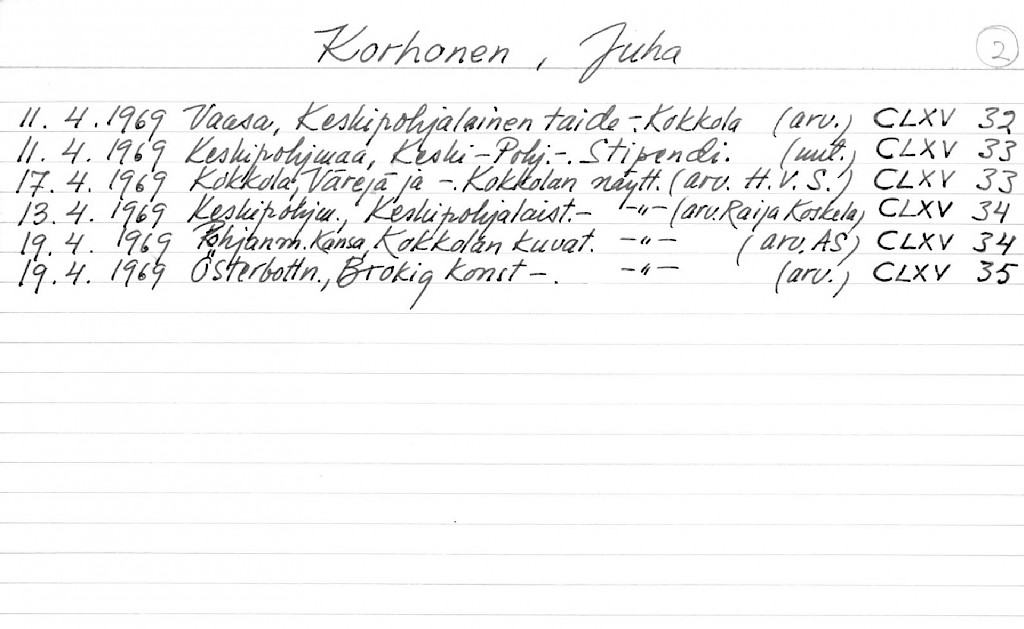 Korhonen, Juha 2
11. 4. 1969 Vaasa, Keskipohjalainen taide -. Kokkola (arv.) CLXV 32
11. 4. 1969 Keskipohjmaa, Keski-Pohj. -. Stipendi. (uut.) CLXV 33
17. 4. 1969 Kokkola, Värejä ja -. Kokkolan näytt. (arv. H.V.S.) CLXV 33
13. 4. 1969 Keskipohjm., Keskipohjalaist. - -"- (arv. Raija Koskela) CLXV 34
19. 4. 1969 Pohjanm. Kansa, Kokkolan kuvat. -"- (arv. AS) CLXV 34
19. 4. 1969 Österbottn., Brokig konst -. -"- (arv.) CLXV 35